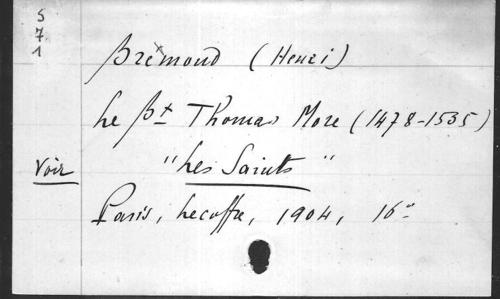 5
7
1
Bremond (Henri)
Le Bt Thomas More (1478-1535)
Voir "Les Saints"
Paris, Lecoffre, 1904, 16°